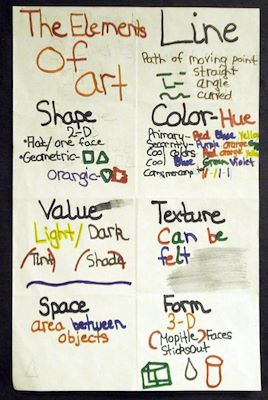 The Elements
Of
art
Line
Path of moving point
straight
angle
curved
Shape
2-D
•Flat/one face
•Geometric-
orangic-
Color-Hue
Primary-Red Blue Yellow
Purple orange
Cool colors Red orange Yellow
Cool Blue Green Violet
Value
Light/Dark
(Tint (Shade
Texture
Can be
felt
Space
area between
objects
Form
3-D
(Mopitle) Faces
SticksOut